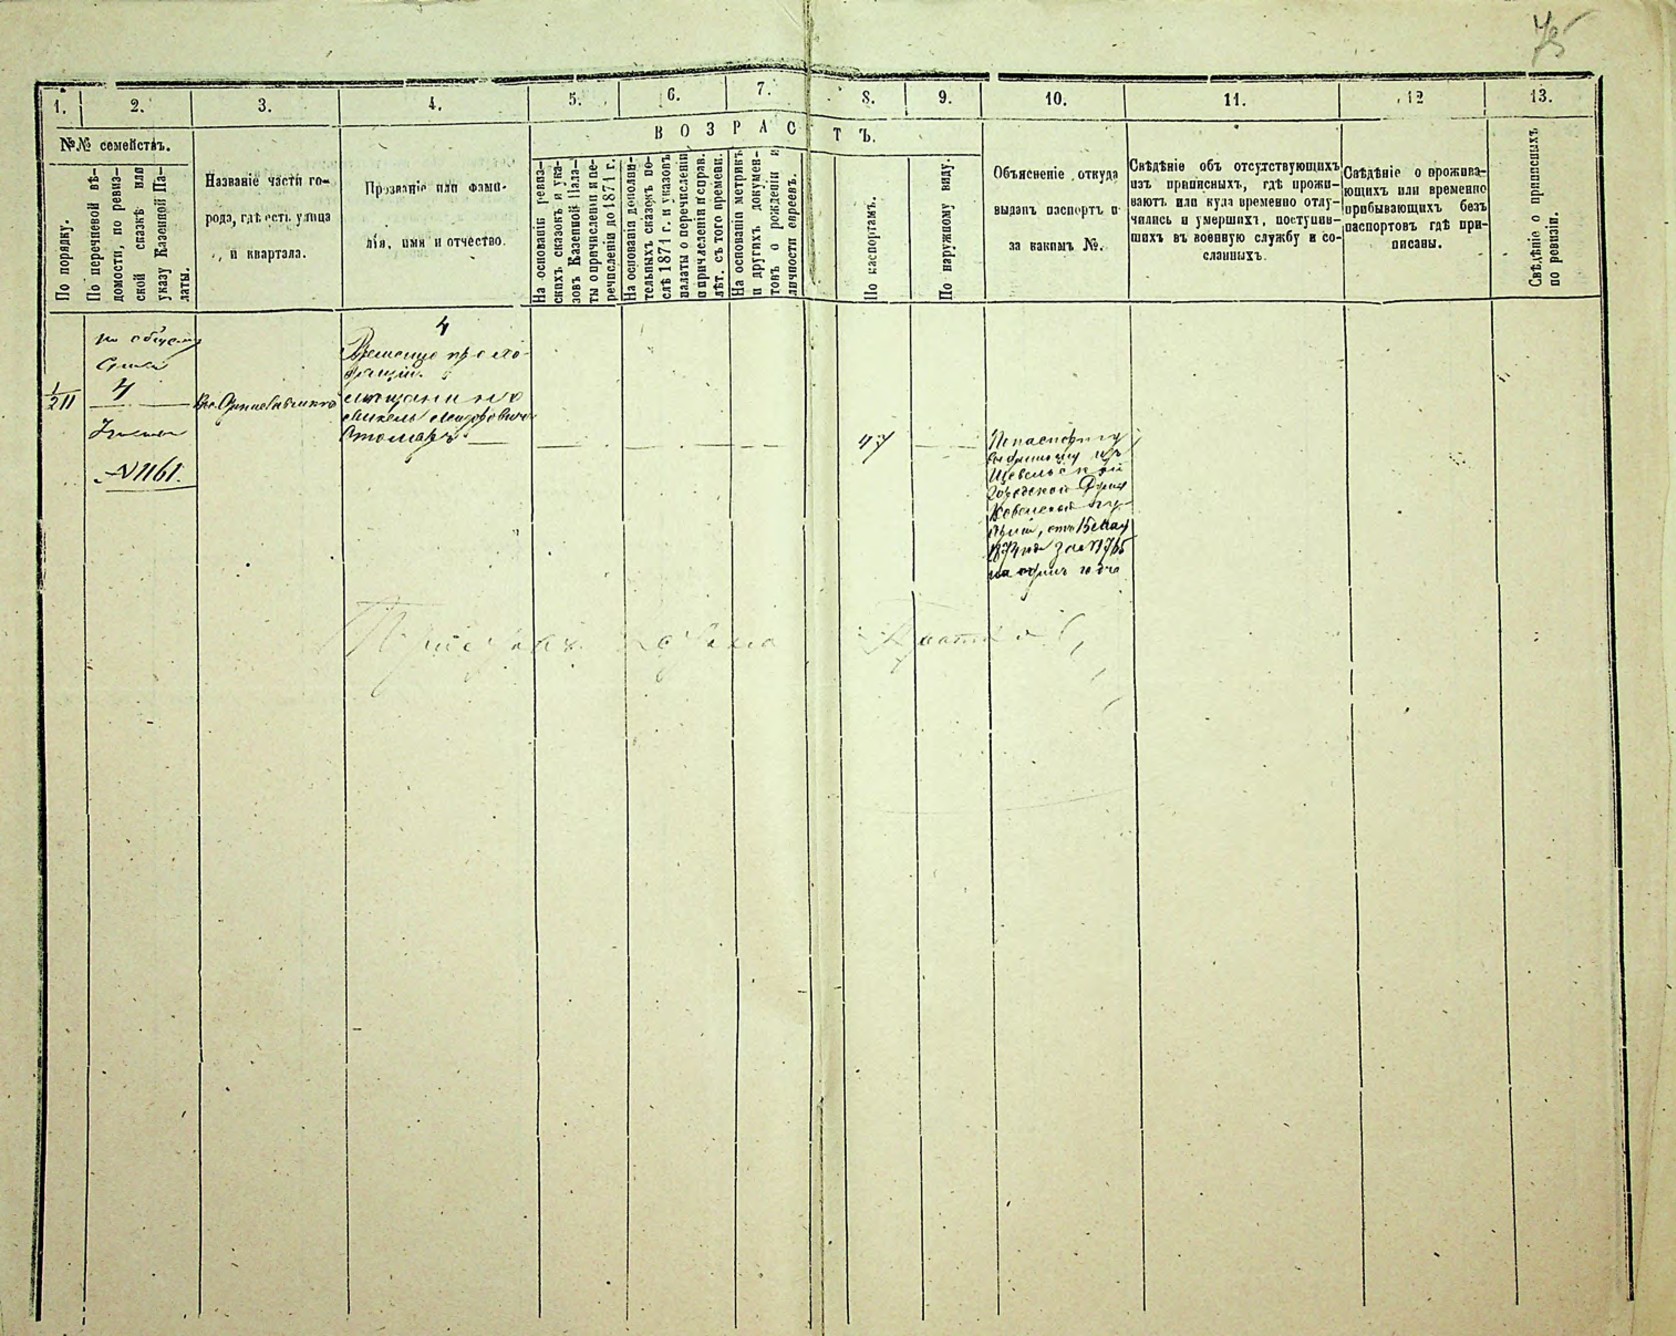 75
1. 2. 3. 4. 5. 6. 7. 8. 9. 10. 11. 12 13.
№№ семействъ.
По порядку.
По перечневой вѣ-
домости, по ревиз-
ской сказкѣ или
указу Казенной Па-
латы.
Названіе части го-
рода, гдѣ есть улица
и квартала.
Прозваніе или фами-
лія, имя и отчество.
ВОЗРАСТЪ.
На основаніи ревиз-
скихъ сказокъ и ука-
зовъ Казенной Пала-
ты о причисленіи и пе-
речисленіи до 1871 г.
На основаніи дополни-
тельныхъ сказокъ по-
слѣ 1871 г. и указовъ
палаты о перечисленіи
и причисленіи и справ.
лѣт. съ того времени.
На основаніи метрикъ
и другихъ докумен-
товъ о рожденіи и
личности евреевъ.
По паспортамъ.
По наружному виду.
Объясненіе откуда
выданъ паспортъ и
за какимъ №.
Свѣдѣніе объ отсутствующихъ
изъ приписныхъ, гдѣ прожи-
ваютъ или куда временно отлу-
чились и умершихъ, поступив-
шихъ въ военную службу и со-
сланныхъ.
Свѣдѣніе о прожива-
ющихъ или временно
прибывающихъ безъ
паспортовъ гдѣ при-
писаны.
Свѣдѣніе о приписныхъ
по ревизіи.
1/211
по общему
списку
4
№ 1161.
4
Временно про по-
мѣщанинъ
47
По паспорту
выданному изъ
Городской Думы
Ковенской гу-
берніи, отъ 15 мая
1874 года за № 1765
на одинъ годъ